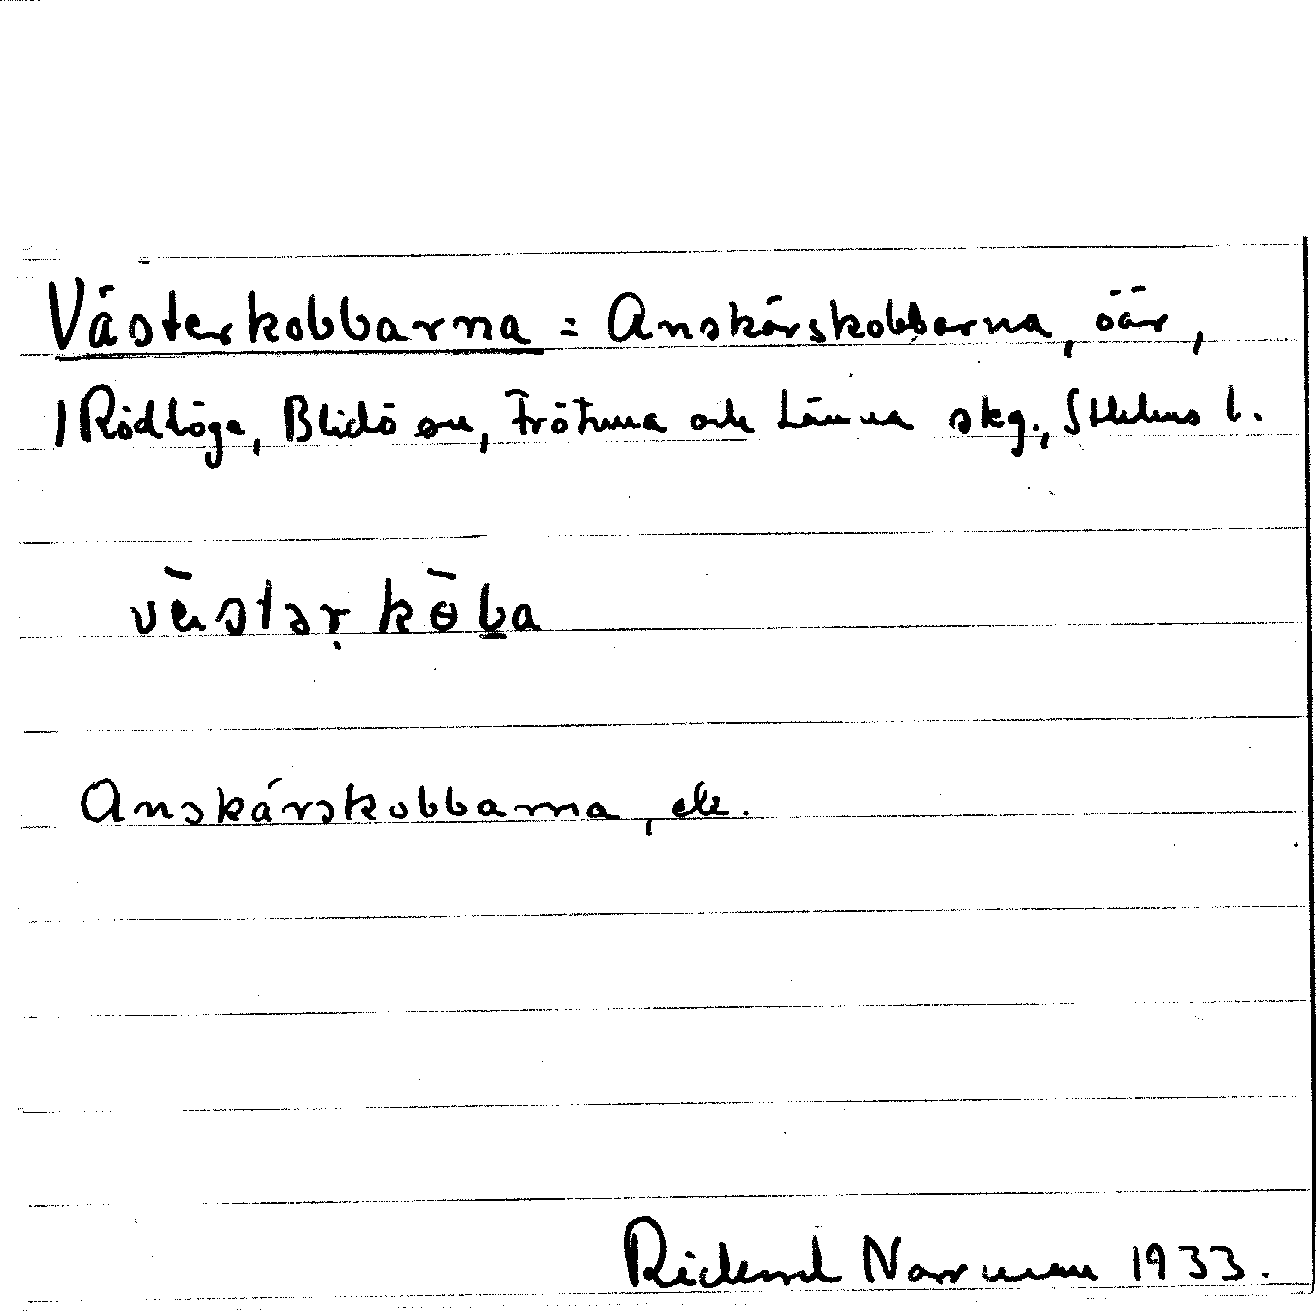 Västerkobbarna = Anskärskobbarna, öar,
Rödlöga, Blidö sn, Frötuna och Länna skg., Sthlms l.
Anskärskobbarna, ek.
Rickard Norrman 1933.